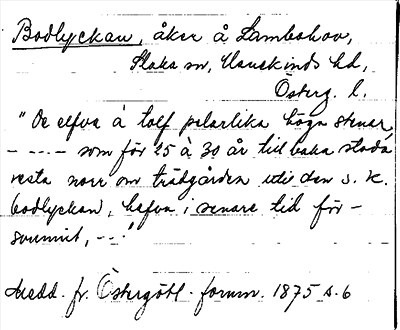 Bodlyckan, åker å Lambohov,
Slaka sn, Hanekinds hd,
Österg. l.
"De elfva à tolf pelarlika höga stenar,
- - - - - som för 25 à 30 år tillbaka stodo
resta norr om trädgården uti den s. k.
bodlyckan, hafva i senare tid för-
svunnit, - - "
Medd. fr. Östergötl. fornm. 1875 s. 6